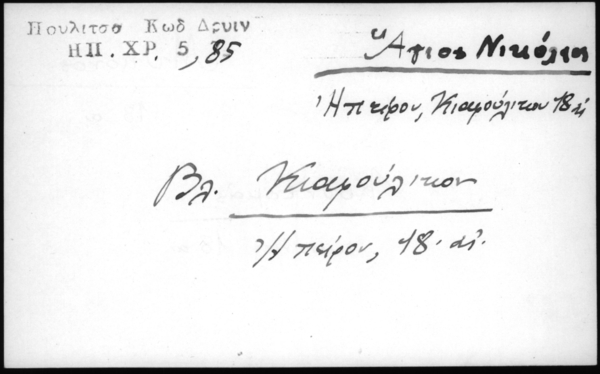 Πουλιτσα Κωδ Δρυιν
ΗΠ. ΧΡ. 5, 85
Ἅγιος Νικόλαος
Ἠπείρου, Κιαμούλιτσου 18 αἰ
Βλ. Κιαμούλιτσου
Ἠπείρου, 18. αἰ.